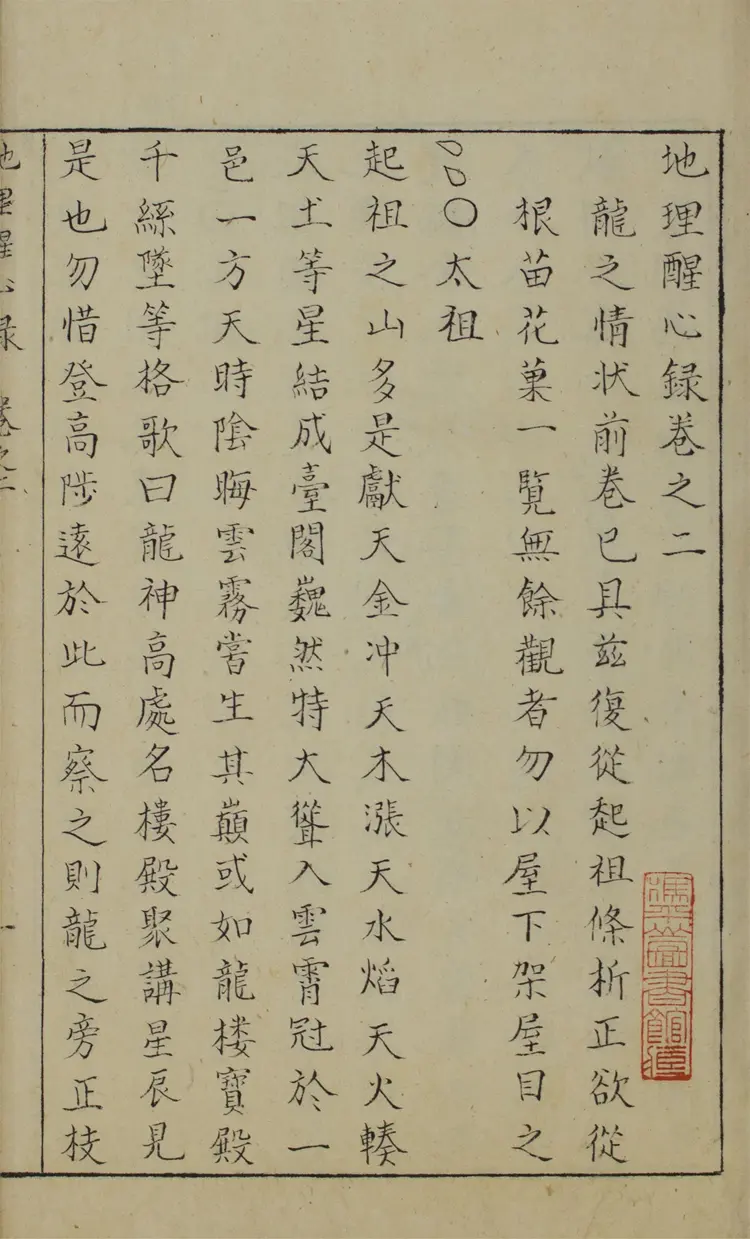 地理醒心録卷之二
龍之情状前卷已具兹復從起祖條析正欲從
根苗花菓一覧無餘觀者勿以屋下架屋目之
〇太祖
起祖之山多是獻天金冲天木漲天水焰天火輳
天土等星結成臺閣巍然特大聳入雲霄冠於一
邑一方天時陰晦雲霧嘗生其巔或如龍楼寳殿
千絲墜等格歌曰龍神高處名樓殿聚講星辰見
是也勿惜登高陟遠於此而察之則龍之旁正枝
地理醒心録 卷之二 一